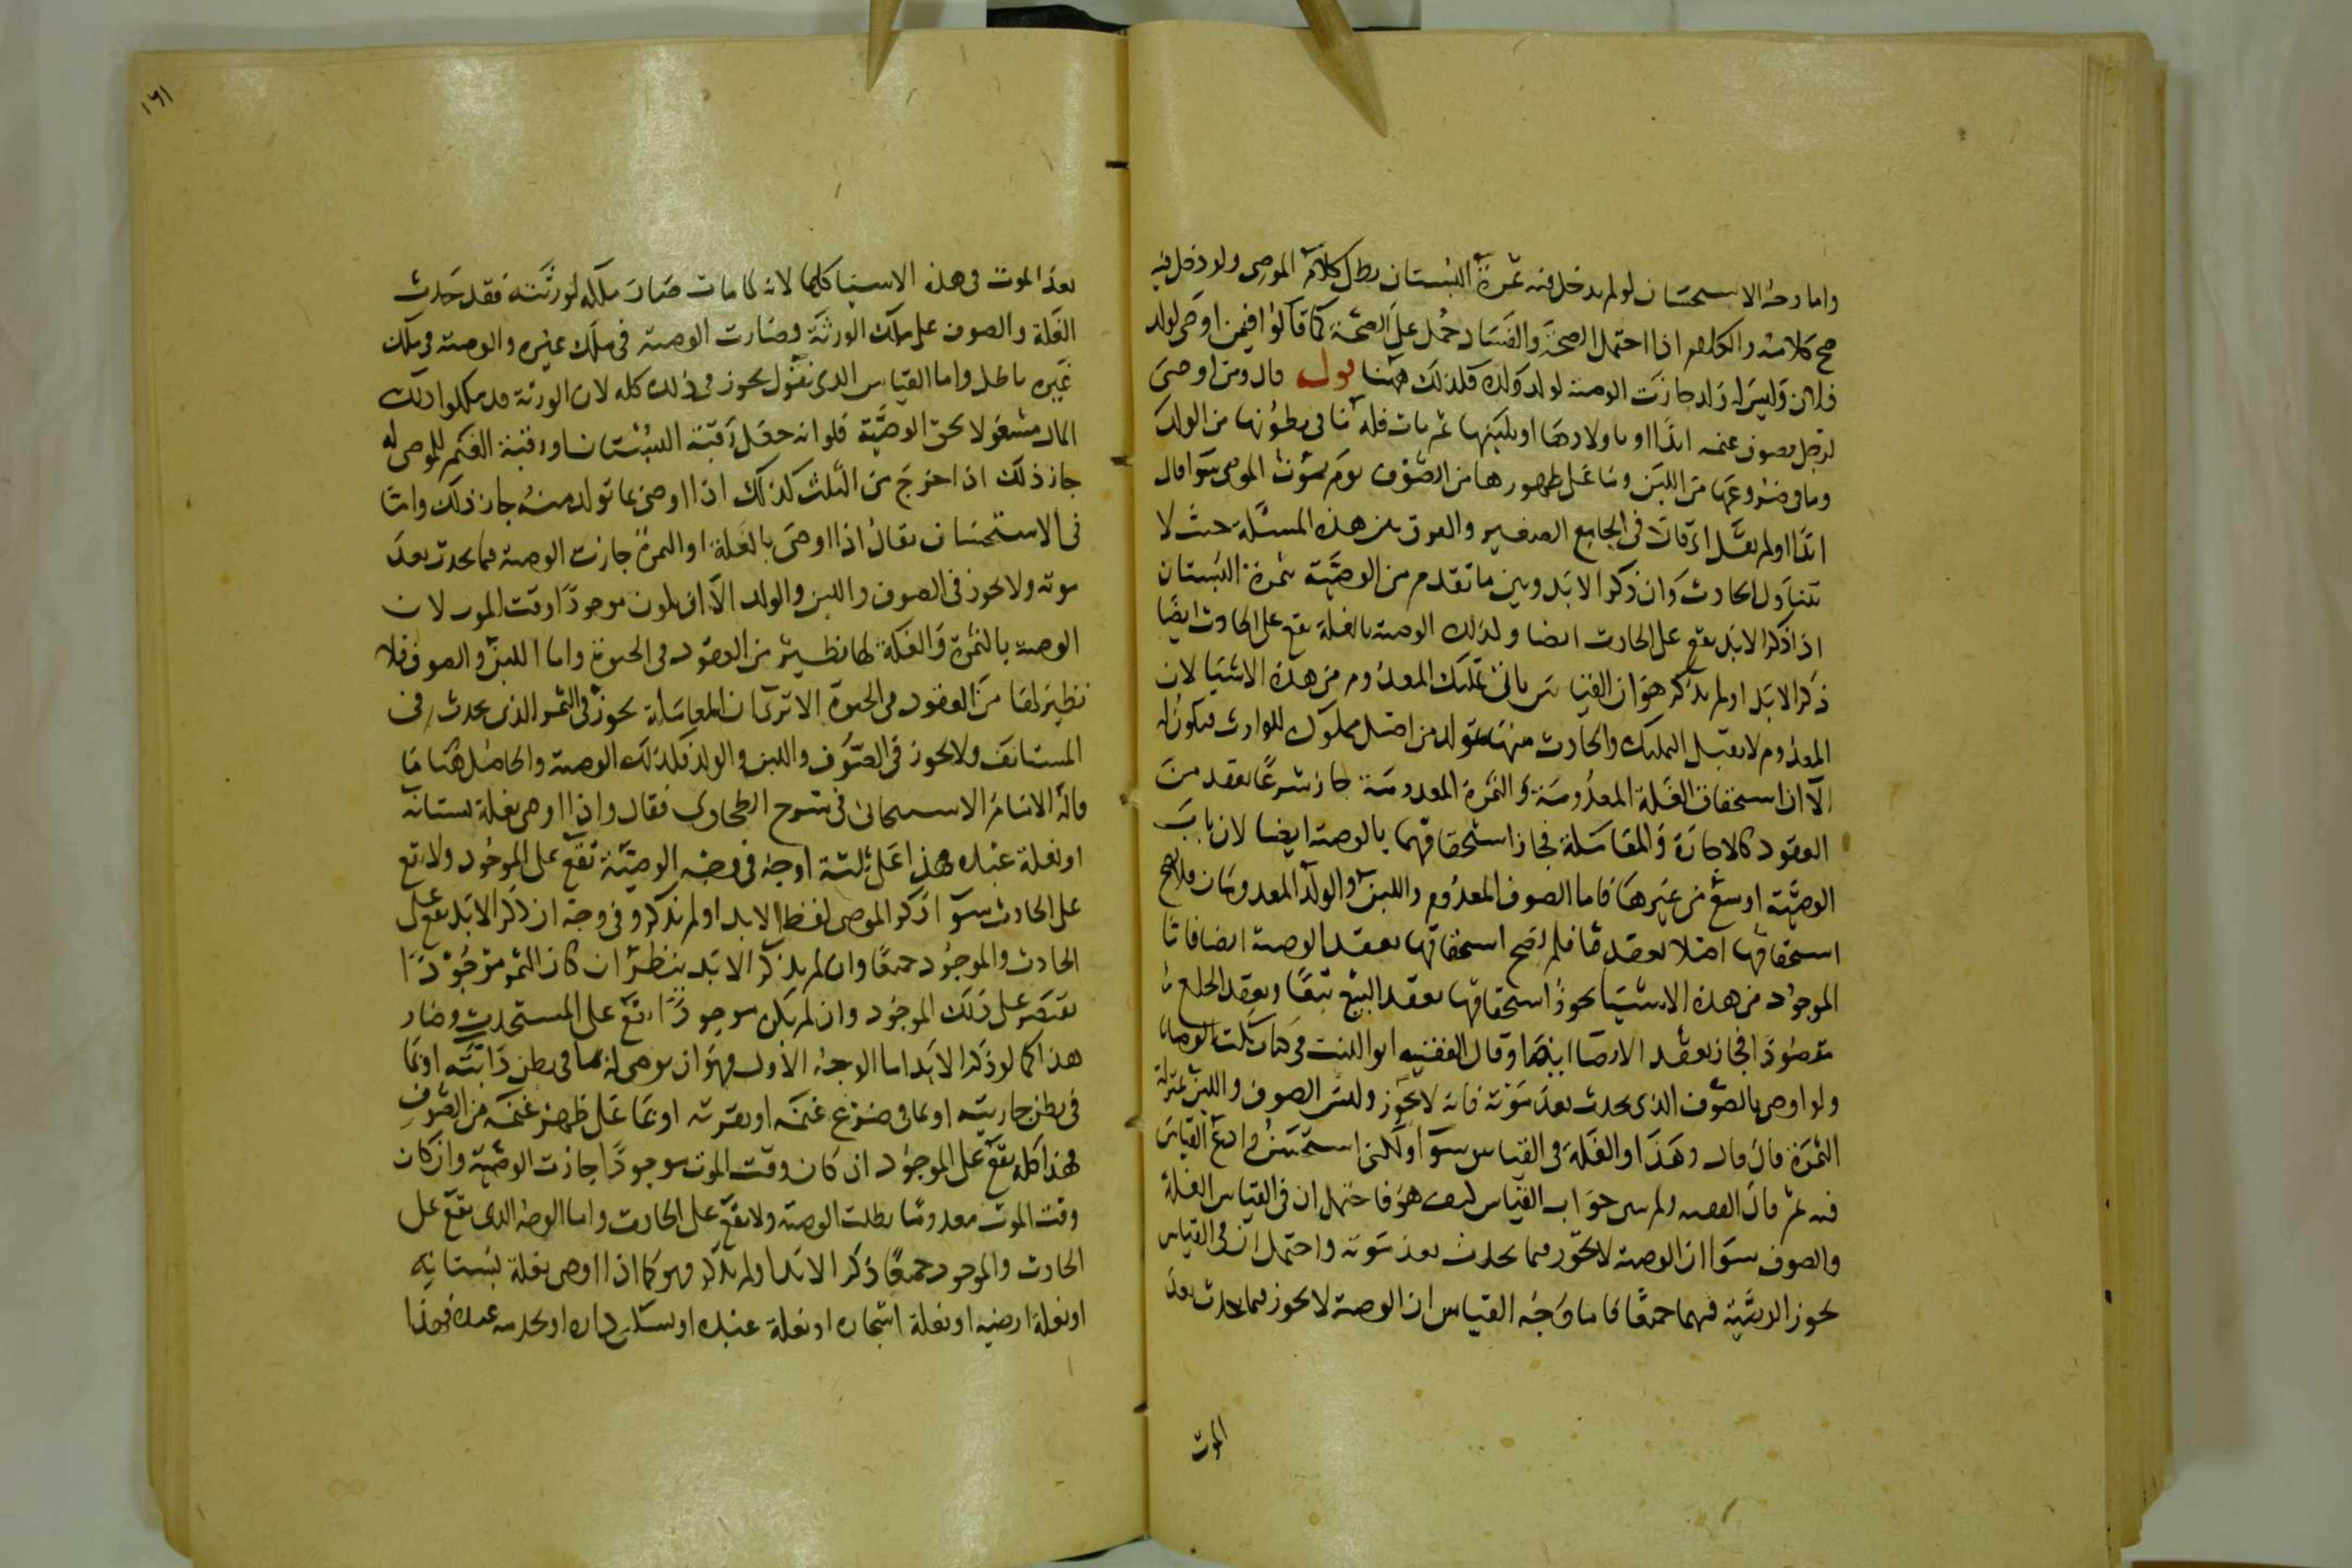 واما وجه الاستحسان لو لم يدخل فيه ثمرة البستان بطل كلام الموصى ولو دخل فيه
صح كلامه والكلام اذا احتمل الصحة والفساد حمل على الصحة كما قالوا فيمن اوصى لولد
فلان وليس له ولد جازت الوصية لولد ولده فكذلك هٰهنا قوله قال ومن اوصى
لرجل بصوف غنمه ابدا او باولادها او بلبنها ثم مات فله ما فى بطونها من الولد
وما فى ضروعها من اللبن وما على ظهورها من الصوف يوم يموت الموصى سوا قال
ابدا او لم يقل اى قال فى الجامع الصغير والفرق بين هذه المسئلة حيث لا
تتناول الحادث وان ذكر الابد وبين ما تقدم من الوصية بثمرة البستان
اذا ذكر الابد يقع على الحادث ايضا وكذلك الوصية بالغلة يقع على الحادث ايضا
ذكر الابد او لم يذكر هو ان القياس يابى تمليك المعدوم من هذه الاشيا لان
المعدوم لا يقبل التمليك والحادث منها يتولد من اصل مملوك للوارث فيكون له
الا ان استحقاق الغلة المعدومة والثمرة المعدومة جاز شرعا بعقد من
العقود كالاجارة والمعاملة فجاز استحقاقهما بالوصية ايضا لان باب
الوصية اوسع من غيرها فاما الصوف المعدوم واللبن والولد المعدومان فلا يصح
استحقاقها اصلا بعقد ما فلم يصح استحقاقها بعقد الوصية ايضا فاما
الموجود من هذه الاشيا يجوز استحقاقها بعقد البيع تبعا وبعقد الخلع
مقصودا فجاز بعقد الايصا ايضا وقال الفقيه ابو الليث فى كتاب نكت الوصايا
ولو اوصى بالصوف الذى يحدث بعد موته فانه لا يجوز وليس الصوف واللبن بمنزلة
الثمرة قال قال وهذا والغلة فى القياس سوا ولكنى استحسن وادع القياس
فيه ثم قال الفقيه ولم يبين جواب القياس كيف هو فاحتمل ان فى القياس الغلة
والصوف سوا ان الوصية لا تجوز فيما يحدث بعد موته واحتمل ان فى القياس
يجوز الوصية فيهما جميعا فاما وجه القياس ان الوصية لا يجوز فيما يحدث بعد
الموت
١٦١
بعد الموت فى هذه الاشيا كلها لانه لما مات صار ملكه لورثته فقد حدث
الغلة والصوف على ملك الورثة وصارت الوصية فى ملك غيره والوصية فى ملك
غيره باطل واما القياس الذى نقول يجوز فى ذلك كله لان الورثة قد ملكوا ذلك
المال مشغولا بحق الوصية فلو انه جعل رقبة البستان او رقبة الغنم للموصى له
جاز ذلك اذا خرج من الثلث كذلك اذا اوصى بما تولد منه جاز ذلك واما
فى الاستحسان يقال اذا اوصى بالغلة او الثمرة جازت الوصية فيما يحدث بعد
موته ولا يجوز فى الصوف واللبن والولد الا ان يكون موجودا وقت الموت لان
الوصية بالثمرة والغلة لها نظير من العقود فى الحيوة واما اللبن والصوف فلا
نظير لها من العقود فى الحيوة الا ترى ان المعاملة يجوز فى الثمر الذى يحدث فى
المستانف ولا يجوز فى الصوف واللبن والولد فكذلك الوصية والحاصل هنا ما
قاله الامام الاسبيجابى فى شرح الطحاوى فقال واذا اوصى بغلة بستانه
او بغلة عبده فهذا على ثلثة اوجه فى وجه الوصية تقع على الموجود ولا يقع
على الحادث سوا ذكر الموصى لفظ الابد او لم يذكر وفى وجه ان ذكر الابد يقع على
الحادث والموجود جميعا وان لم يذكر الابد ينظر ان كان الثمر موجودا
يقتصر على ذلك الموجود وان لم يكن موجودا يقع على المستحدث وصار
هذا كما لو ذكر الابد اما الوجه الاول فهو ان يوصى له بما فى بطن دابته او بما
فى بطن جاريته او بما فى ضرع غنمه او بقرته او بما على ظهر غنمه من الصوف
فهذا كله يقع على الموجود ان كان وقت الموت موجودا جازت الوصية وان كان
وقت الموت معدوما بطلت الوصية ولا يقع على الحادث واما الوجه الذى يقع على
الحادث والموجود جميعا ذكر الابد او لم يذكر فهو كما اذا اوصى بغلة بستانه
او بغلة ارضه او بغلة اشجاره او بغلة عبده او بسكنى داره او بخدمة عبده فهذا